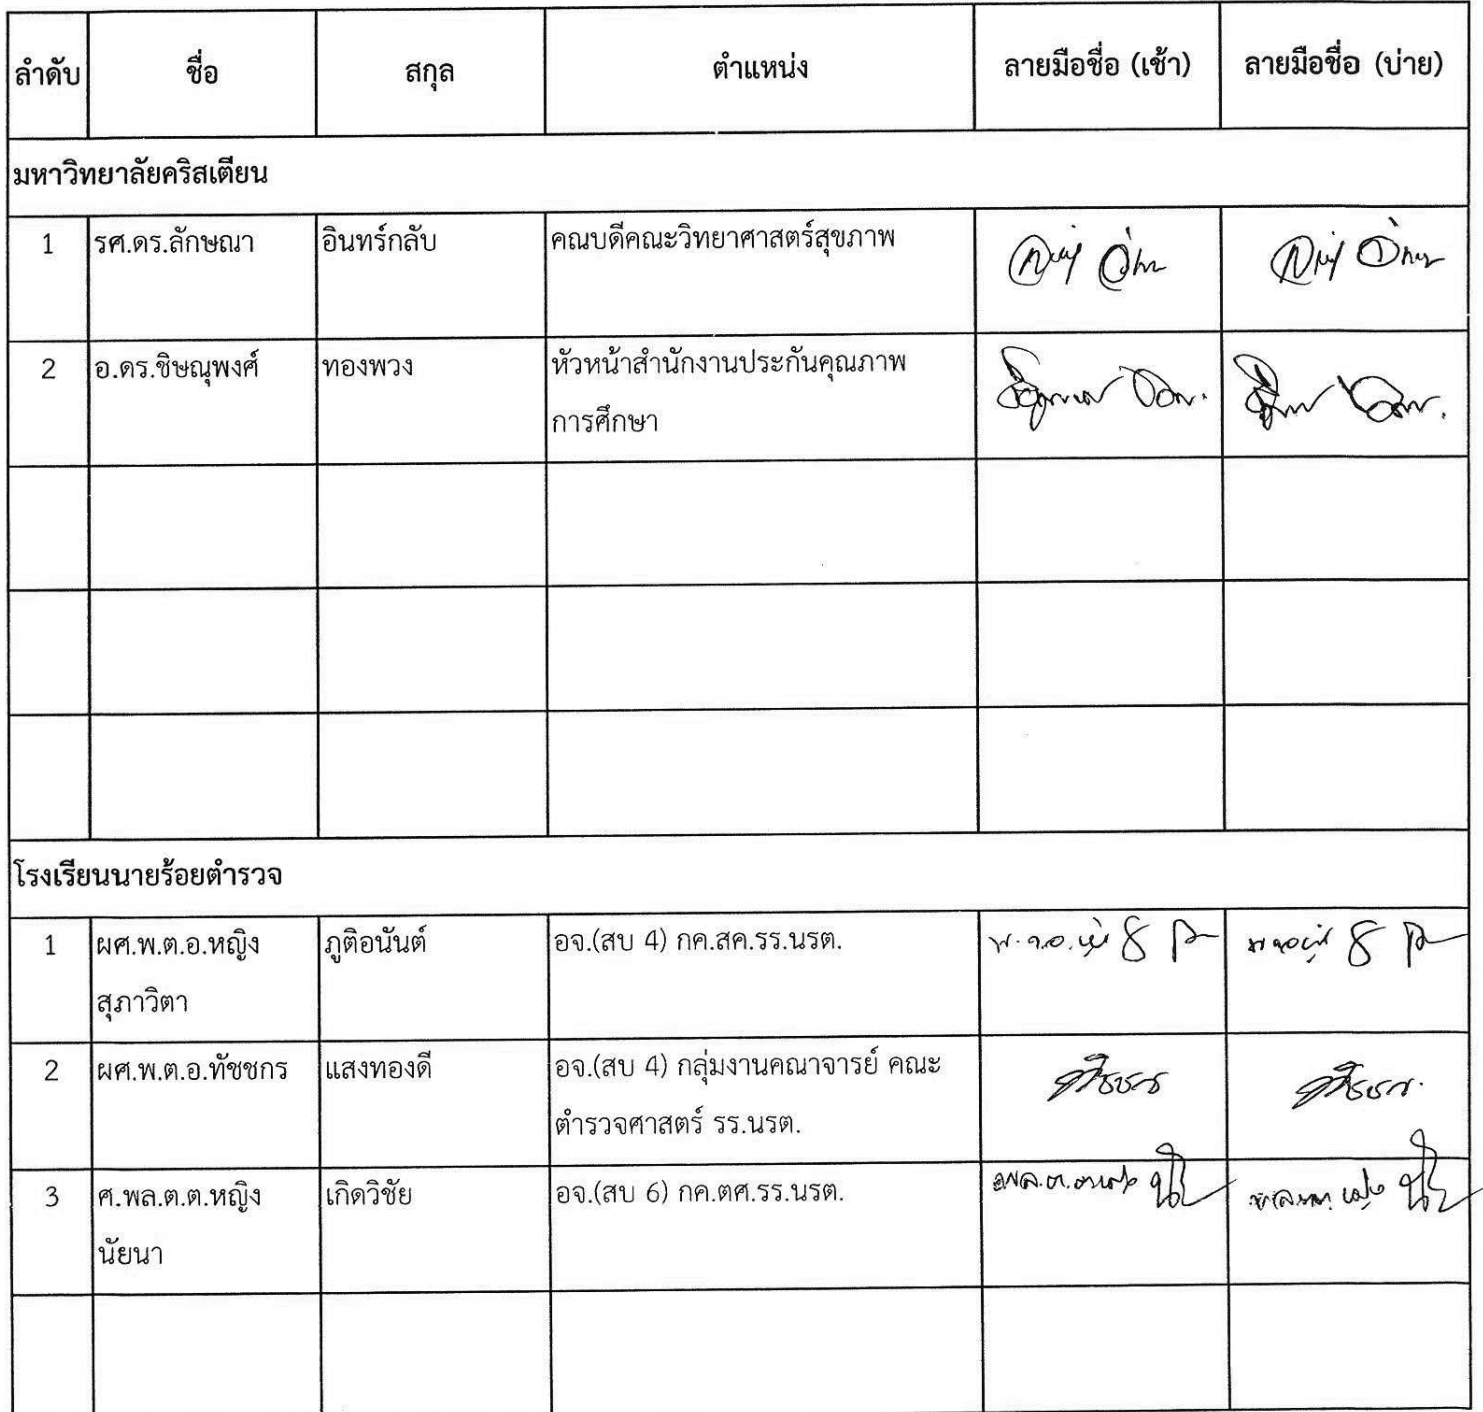 ลำดับ ชื่อ สกุล ตำแหน่ง ลายมือชื่อ (เช้า) ลายมือชื่อ (บ่าย)
มหาวิทยาลัยคริสเตียน
1 รศ.ดร.ลักษณา อินทร์กลับ คณบดีคณะวิทยาศาสตร์สุขภาพ
2 อ.ดร.ชิษณุพงศ์ ทองพวง หัวหน้าสำนักงานประกันคุณภาพ
การศึกษา
โรงเรียนนายร้อยตำรวจ
1 ผศ.พ.ต.อ.หญิง ภูติอนันต์ อจ.(สบ 4) กค.สค.รร.นรต.
สุภาวิตา
2 ผศ.พ.ต.อ.ทัชชกร แสงทองดี อจ.(สบ 4) กลุ่มงานคณาจารย์ คณะ
ตำรวจศาสตร์ รร.นรต.
3 ศ.พล.ต.ต.หญิง เกิดวิชัย อจ.(สบ 6) กค.ตศ.รร.นรต.
นัยนา